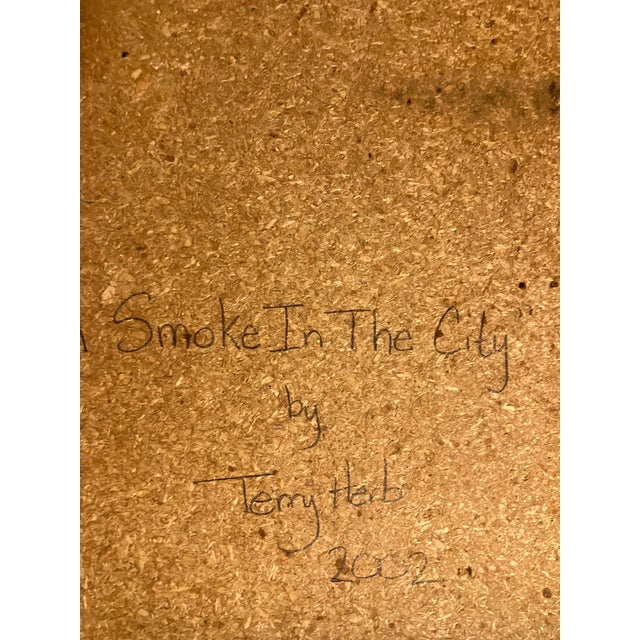 " Smoke In The City"
by
Terry Herb
2002